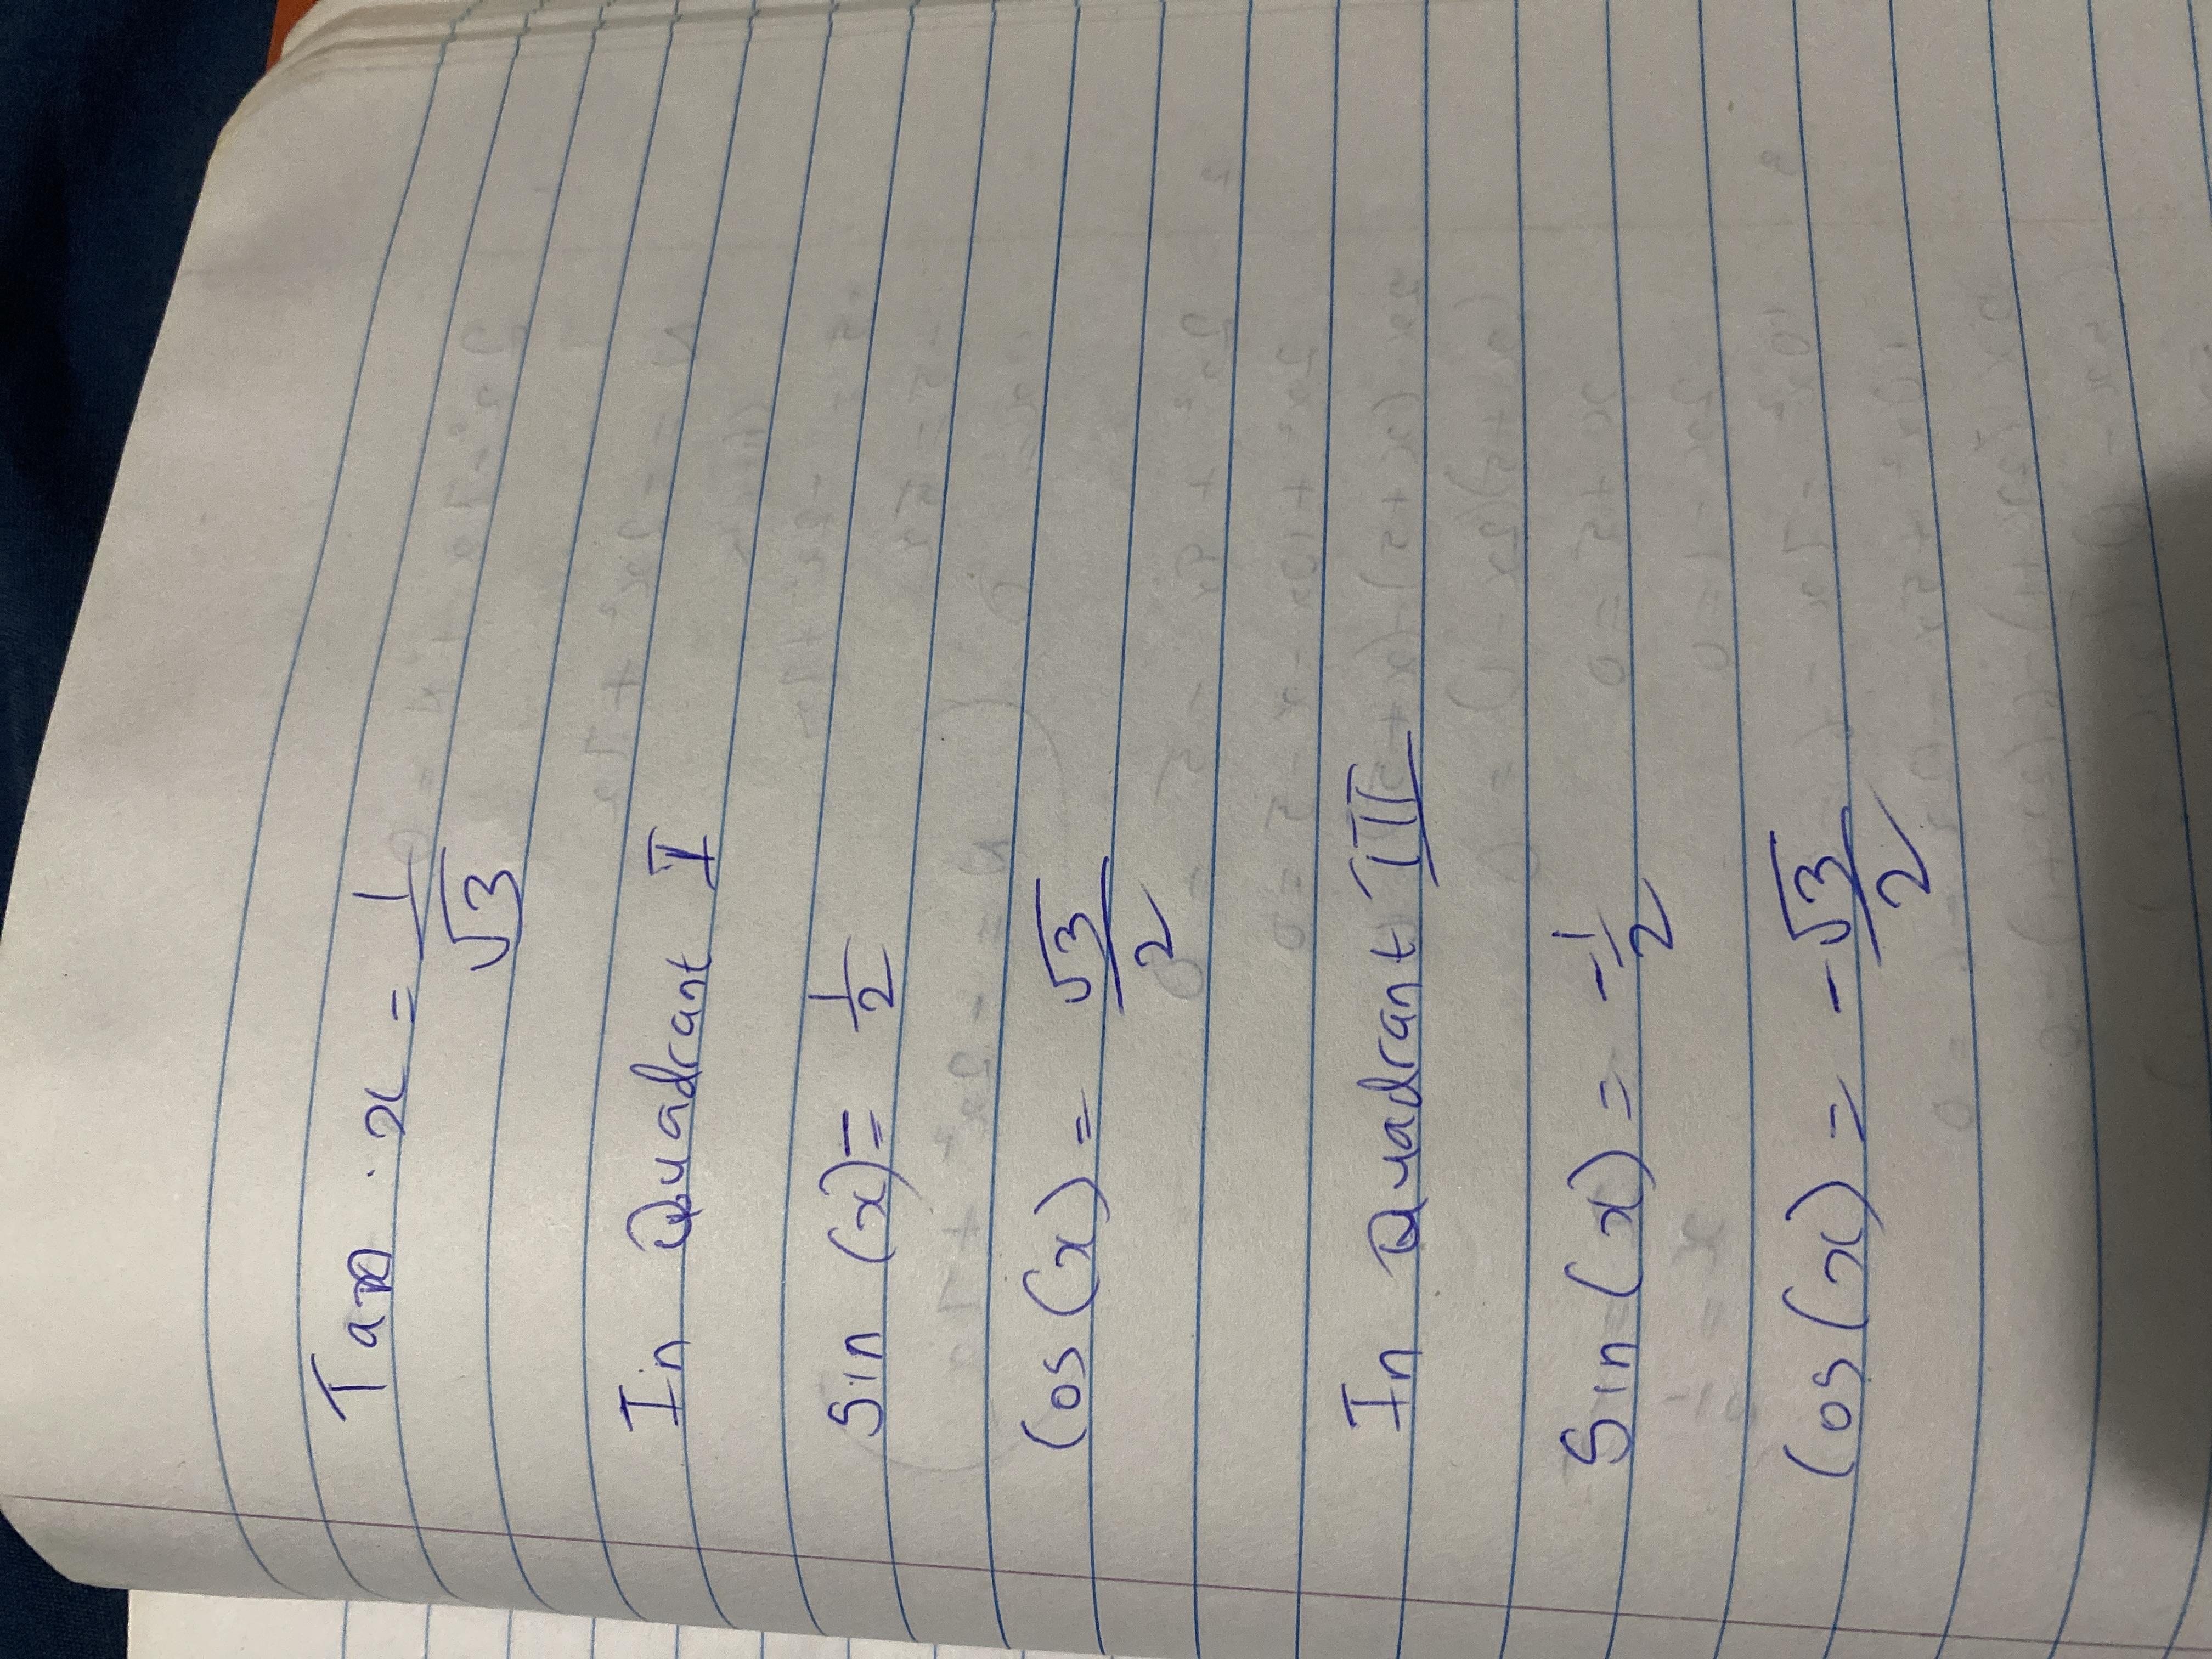 Tan x = 1/√3
In Quadrant I
Sin (x) = 1/2
Cos (x) = √3/2
In Quadrant III
Sin (x) = -1/2
Cos (x) = -√3/2